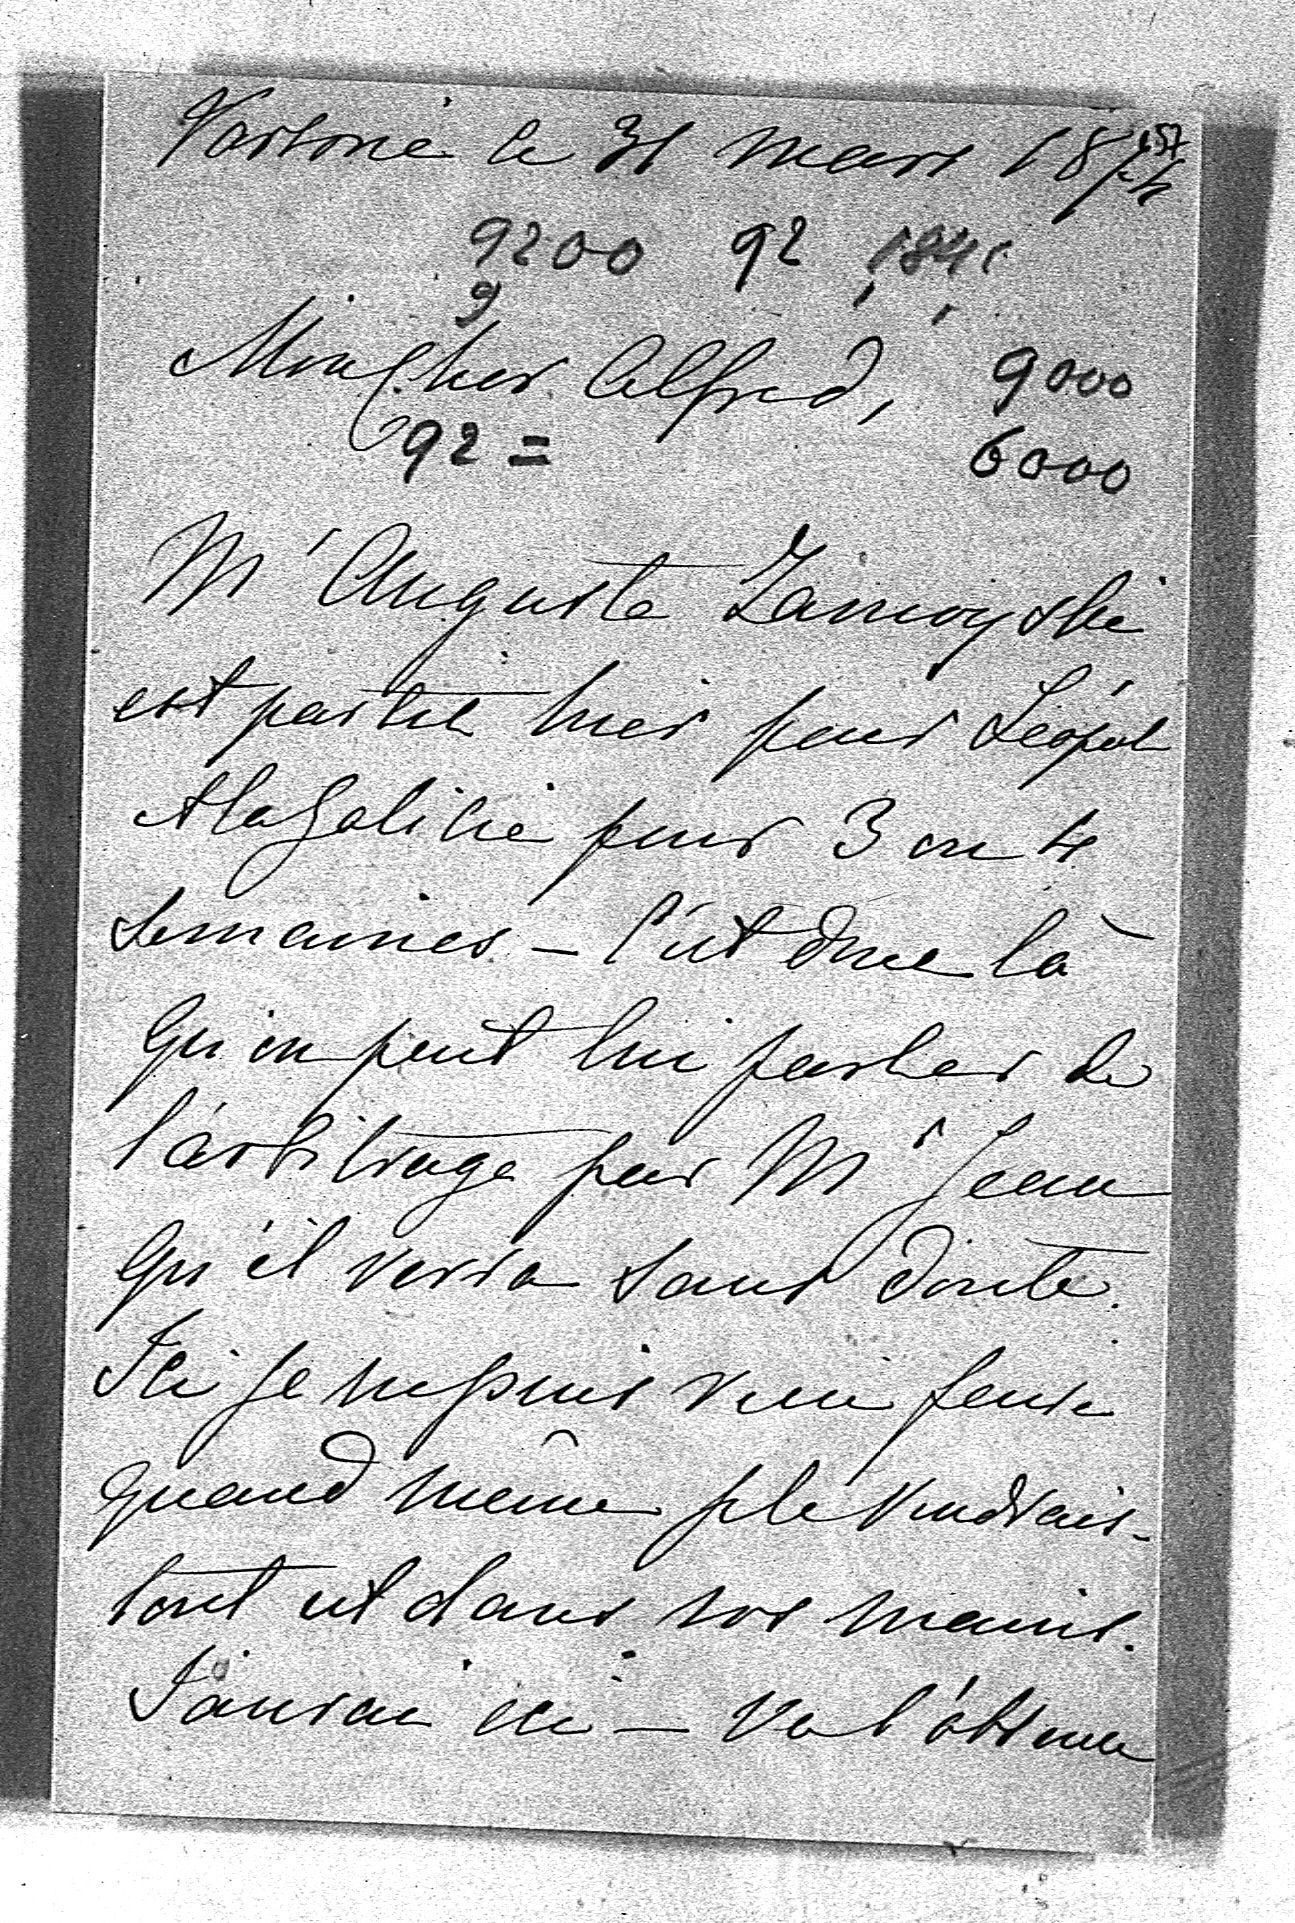 Varsovie le 31 Mars 1874
157
9200 92 184
9
Mon Cher Alfred, 9000
92 = 6000
Mr Auguste Zamoyski
est partit hier pour Léopol
et la Galicie pour 3 ou 4
Semaines – C'est donc là
Qu'on peut lui parler de
l'arbitrage par Mr Jean
Qu'il verra sans doute.
Ici je ne puis rien faire
quand même je le voudrais –
tout est dans vos mains.
J'aurai ici – Vu l'